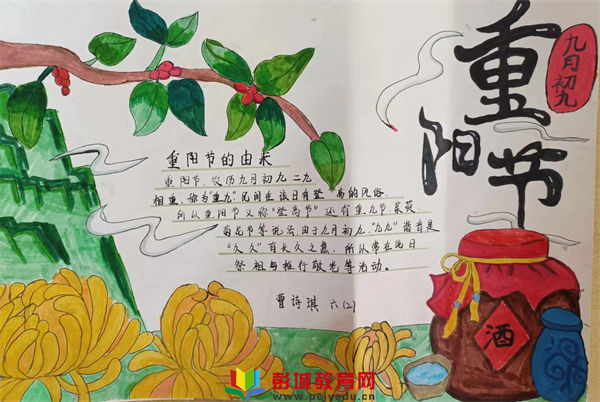 九月初九
重阳节
重阳节的由来
重阳节,农历九月初九,二九
相重,称为"重九",民间在该日有登高的风俗
所以重阳节又称"登高节"还有重九节、茱萸
菊花节等说法,由于九月初九,"九九"谐音是
"久久"有长久之意,所以常在此日
祭祖与推行敬老等活动。
曹诗琪 六(2)
酒
彭城教育网
www.pcjyedu.cn